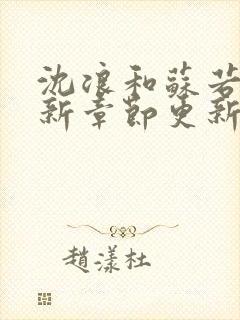 沈浪和蘇若
新章節更新
趙漾杜